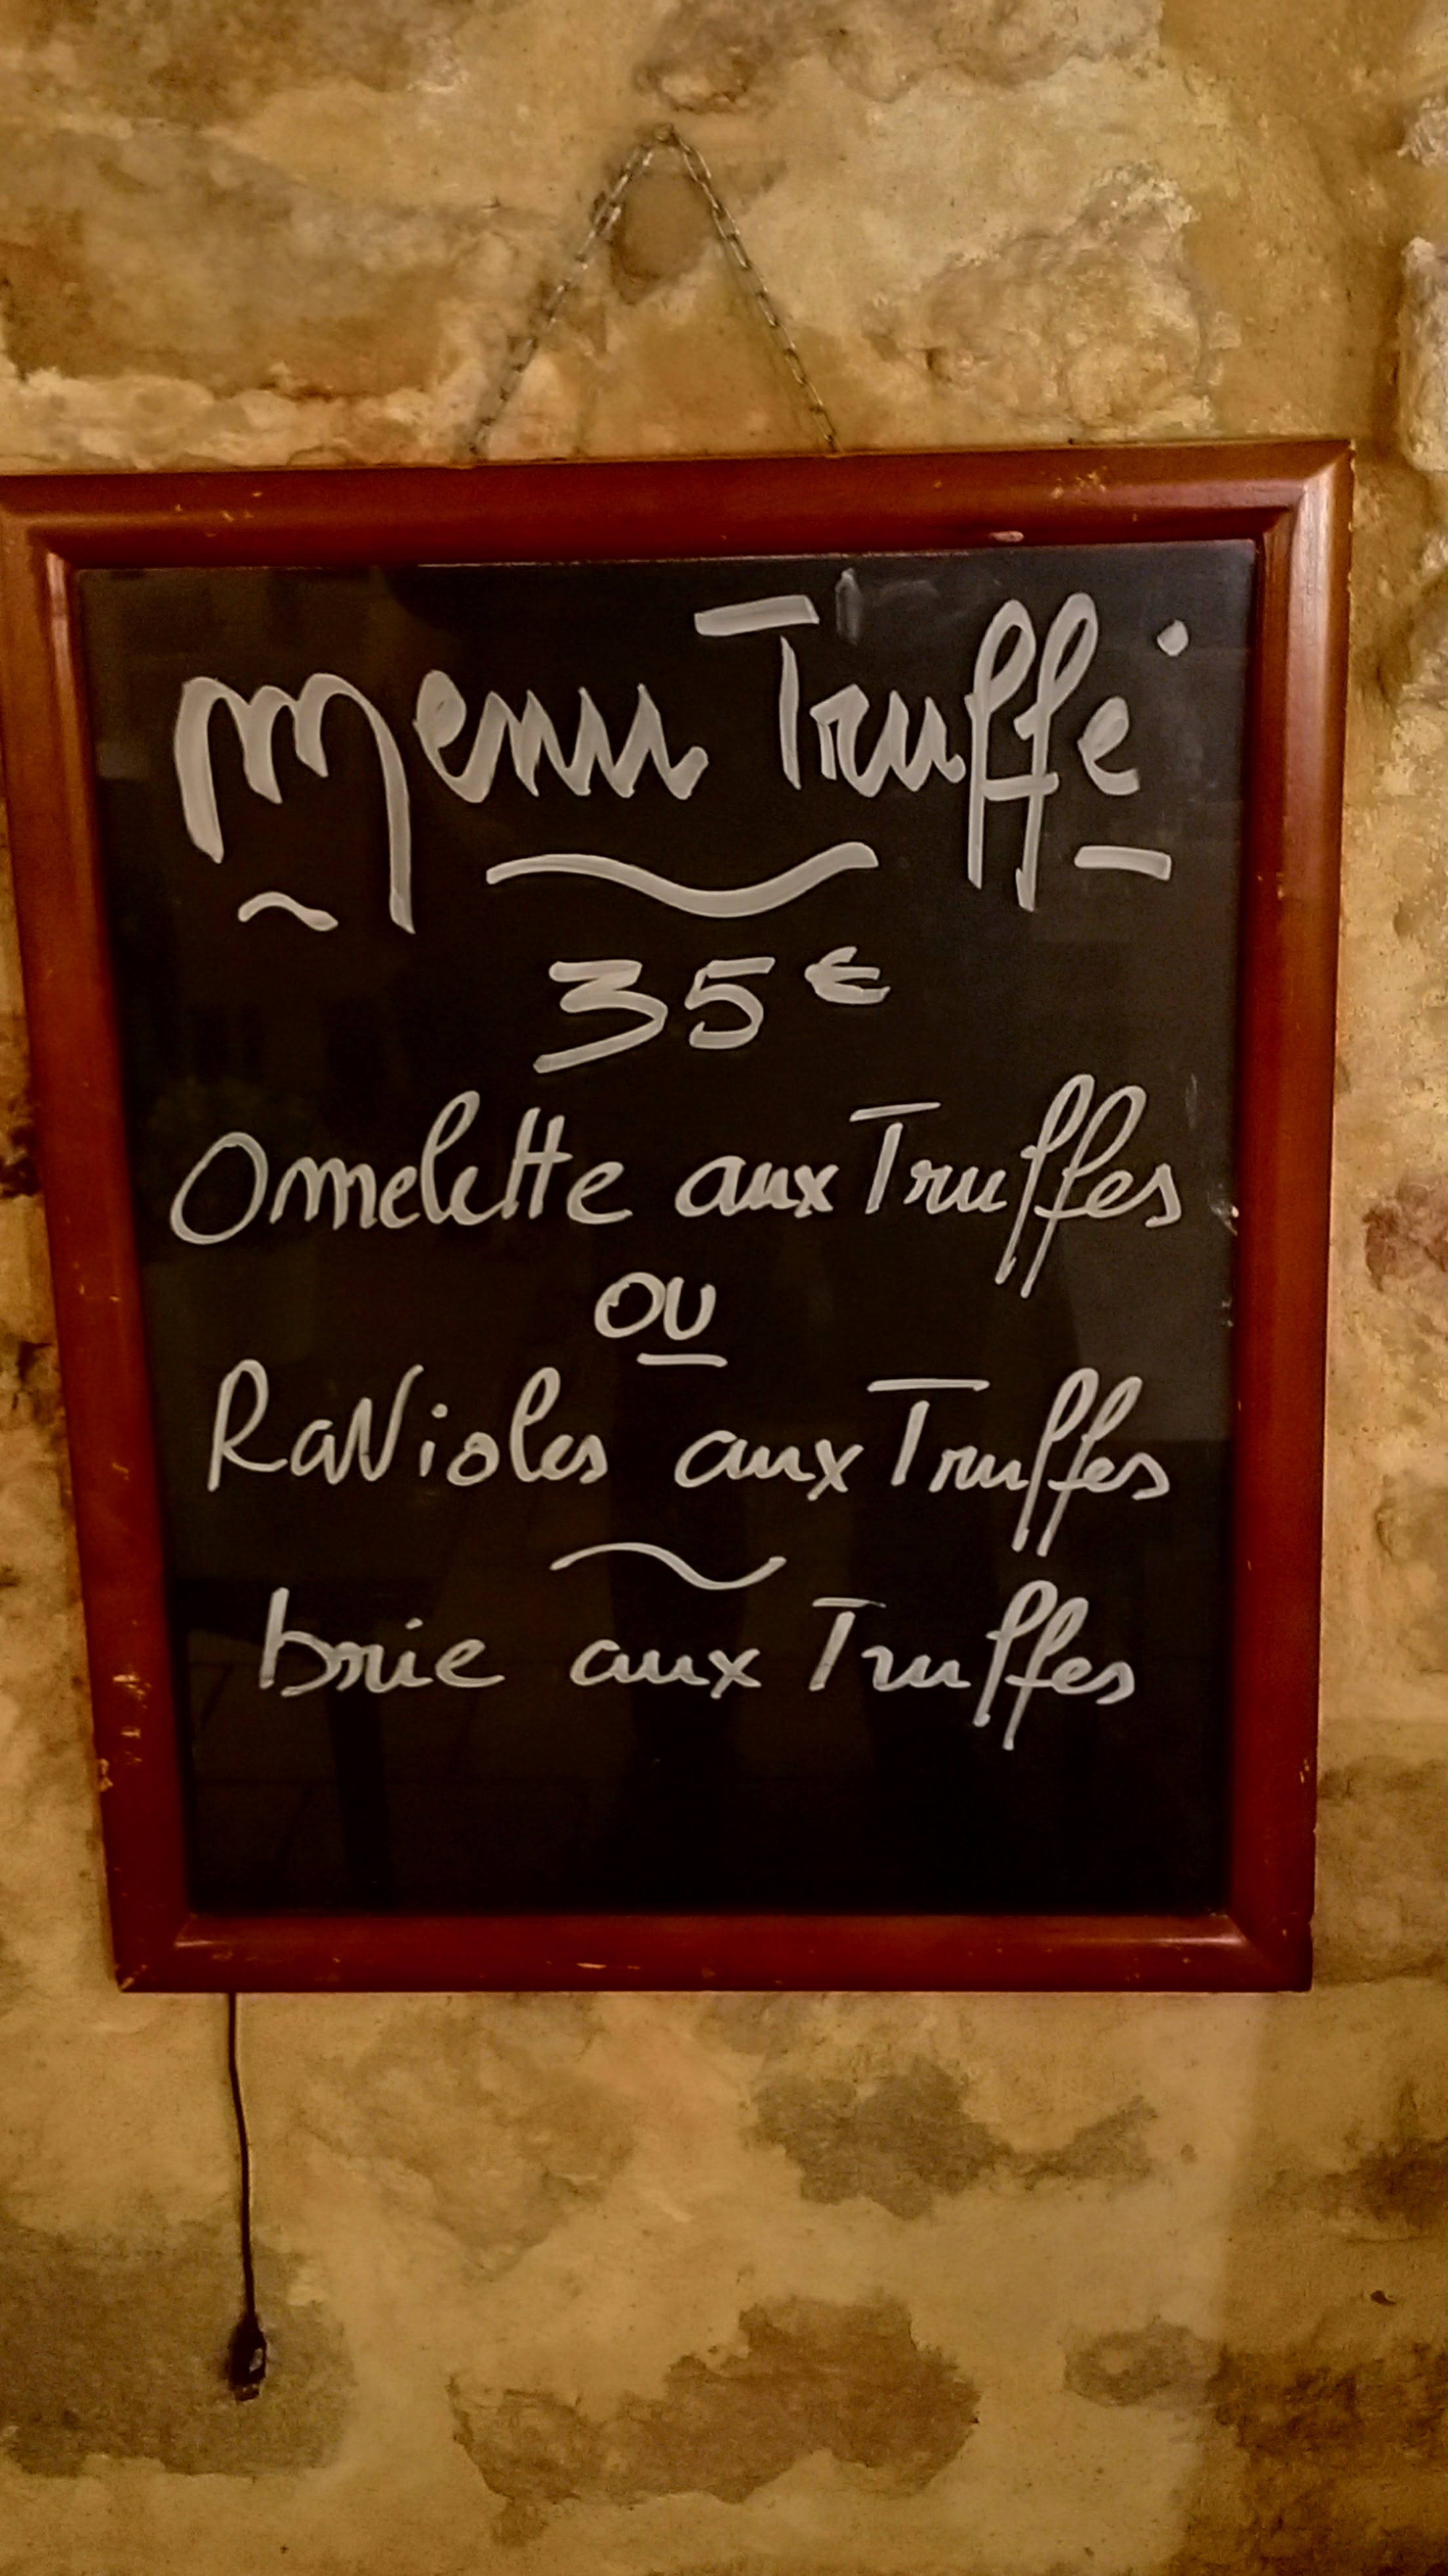 Menu Truffé
35€
Omelette aux Truffes
ou
RaVioles aux Truffes
brie aux Truffes